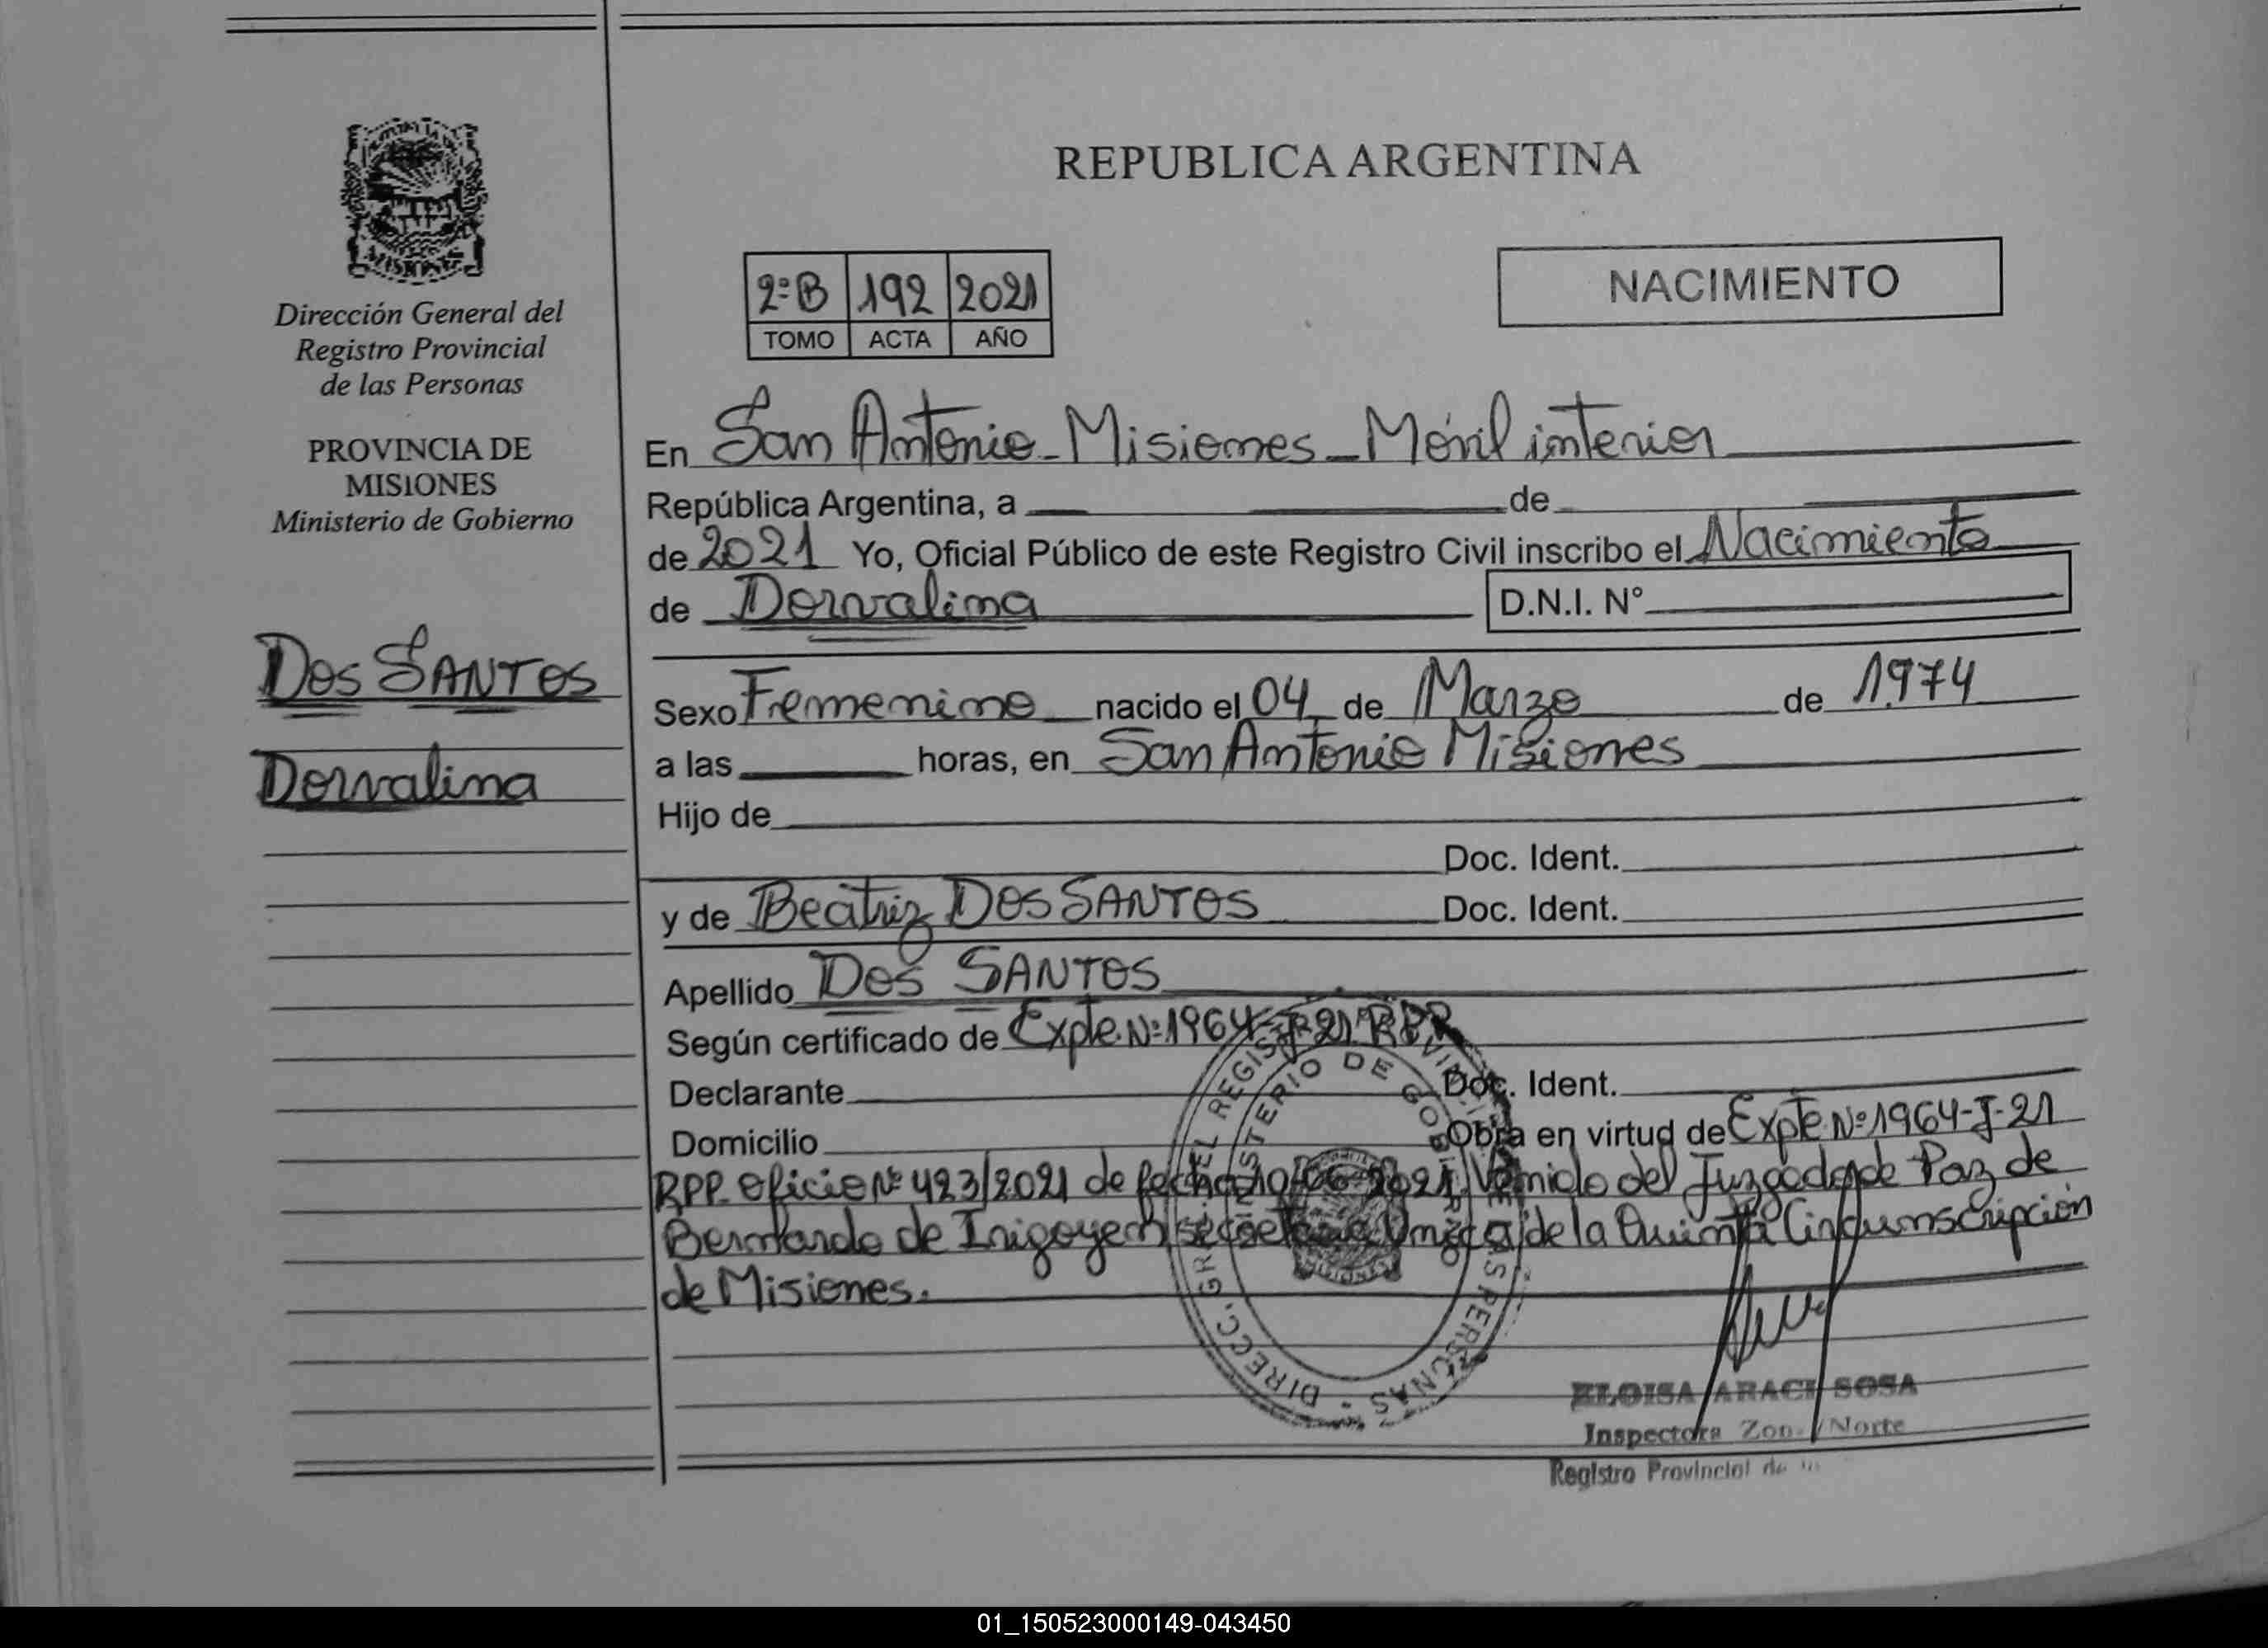 REPUBLICA ARGENTINA
MISIONES
Dirección General del
Registro Provincial
de las Personas
PROVINCIA DE
MISIONES
Ministerio de Gobierno
Dos SANTOS
Dorvalina
2ºB 192 2021
TOMO ACTA AÑO
NACIMIENTO
En San Antonio - Misiones - Móvil interior
República Argentina, a de
de 2021 Yo, Oficial Público de este Registro Civil inscribo el Nacimiento
de Dorvalina D.N.I. Nº
Sexo Femenino nacido el 04 de Marzo de 1974
a las horas, en San Antonio Misiones
Hijo de
Doc. Ident.
y de Beatriz Dos SANTOS Doc. Ident.
Apellido Dos SANTOS
Según certificado de Expte. Nº 1964-J-21 RPP
Declarante Doc. Ident.
Domicilio Obra en virtud de Expte Nº 1964-J-21
RPP. Oficio Nº 423/2021 de fecha 2021. Venido del Juzgado de Paz de
Bernardo de Irigoyen secretaria Unica de la Quinta Circunscripción
de Misiones.
MINISTERIO DE GOBIERNO
ELOISA ARACI SOSA
Inspectora Norte
Registro Provincial de
01_150523000149-043450